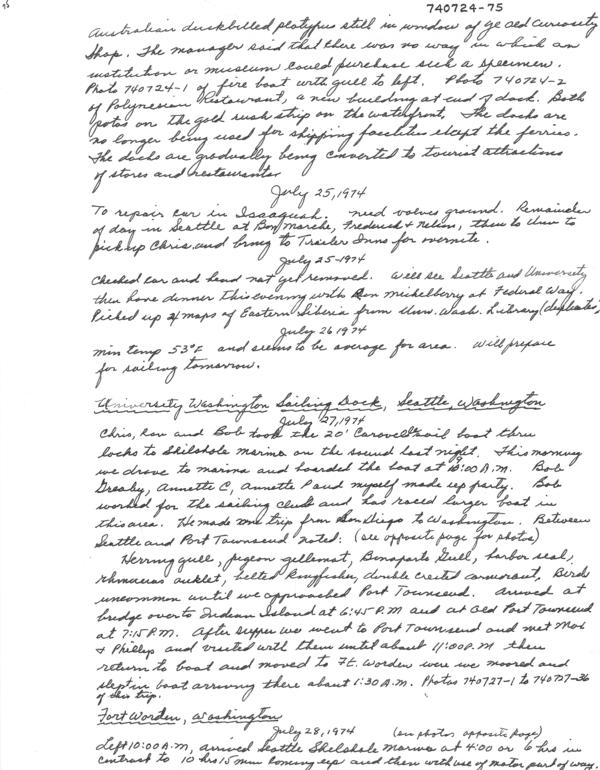 740724-75
Australian duckbilled platypus still in window of ye old Curiosity
Shop. The manager said that there was no way in which an
institution or museum could purchase such a specimen.
Photo 740724-1 of fire boat with gull to left. Photo 740724-2
of Polynesian Restaurant, a new building at end of dock. Both
potos on the gold rush strip on the waterfront. The docks are
no longer being used for shipping facilities except the ferries.
The docks are gradually being converted to tourist attractions
of stores and restaurants.
July 25, 1974
To repair car in Issaquah. need valves ground. Remainder
of day in Seattle at Bon Marche, Frederick & Nelson, then to
pick up Chris and bring to Trailer Inns for overnite.
July 25-1974
Checked car and head not yet removed. Will see Seattle and University
then have dinner this evening with Don Mickelberry at Federal Way.
Picked up 24 maps of Eastern Siberia from Univ. Wash. Library (duplicates)
July 26 1974
min temp 53°F and seems to be average for area. Will prepare
for sailing tomorrow.
University Washington Sailing Dock, Seattle, Washington
July 27, 1974
Chris, Ron and Bob took the 20' Caravel sail boat thru
locks to Shilshole marina on the sound last night. This morning
we drove to marina and boarded the boat at 10:00 A.M. Bob
Annette C, Annette P and myself made up party. Bob
worked for the sailing club and has raced larger boat in
this area. He made one trip from San Diego to Washington. Between
Seattle and Port Townsend noted: (see opposite page for photos)
Herring gull, pigeon gillemot, Bonaparte Gull, harbor seal,
rhinoceros auklet, belted Kingfisher, double crested cormorant. Birds
uncommon until we approached Port Townsend. Arrived at
bridge over to Indian Island at 6:45 P.M and at Old Port Townsend
at 7:15 P.M. After supper we went to Port Townsend and met
& Phillip and visited with them until about 11:00 P.M then
return to boat and moved to Ft. Worden were we moored and
slept in boat arriving there about 1:30 A.M. Photos 740727-1 to 740727-36
of this trip.
Fort Worden, Washington
July 28, 1974 (on photos opposite page)
Left 10:00 A.M, arrived Seattle Shelshole Marina at 4:00 or 6 hrs in
contrast to 10 hrs 15 min coming up and then with use of motor part of way.